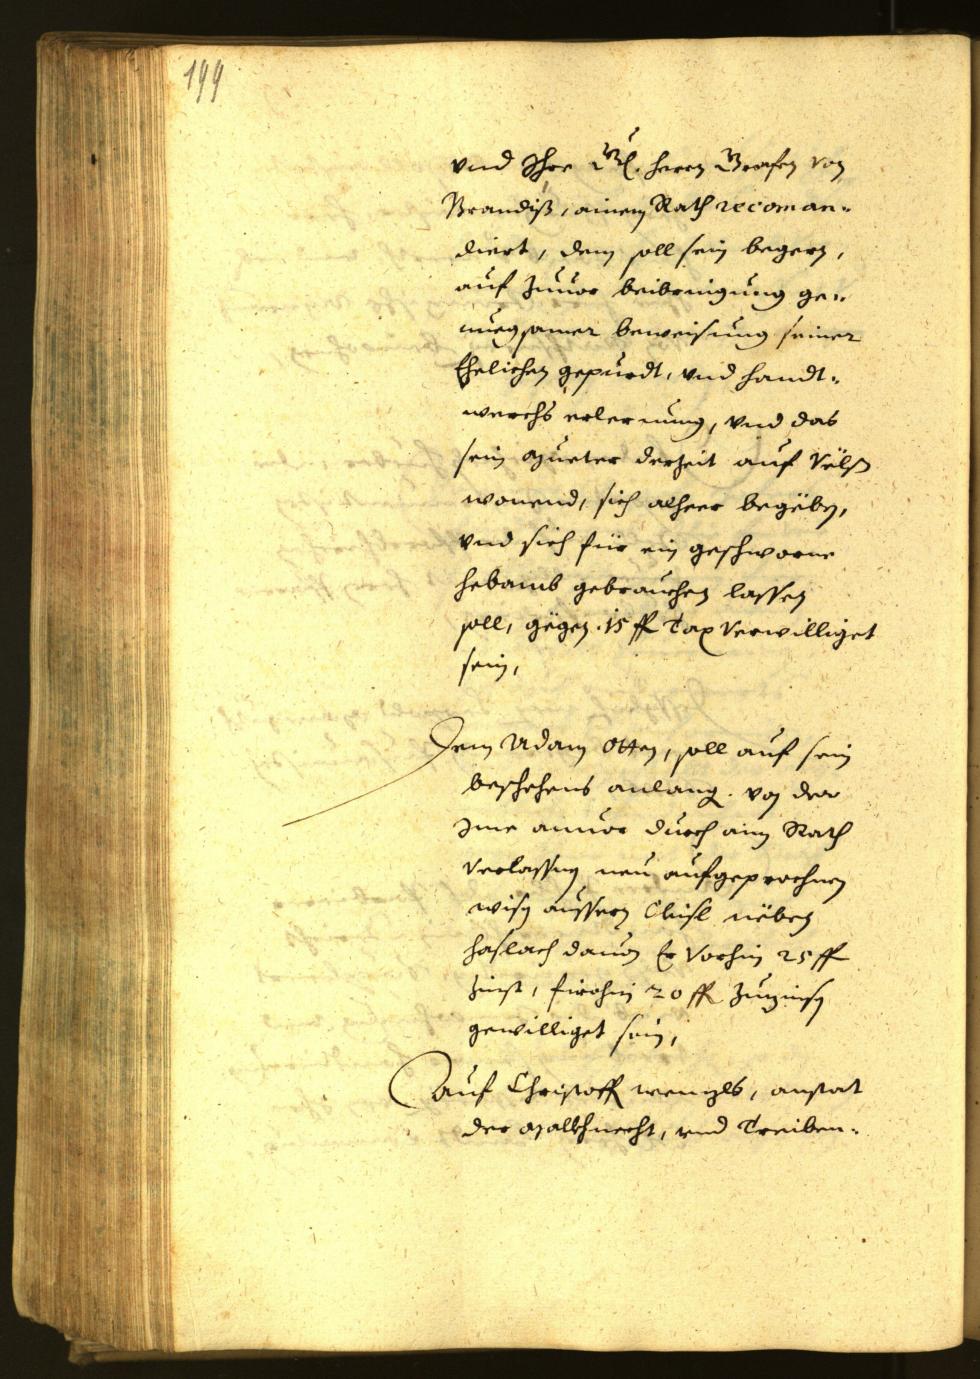 199
vnd Ihre Gl. herrn Grafen von
Brandiß, ainem Rath recoman-
diert, dem soll sein begern,
auf zuuor beibringung ge-
nuegsamer beweisung seiner
Ehelichen gepurdt, vnd handt-
werchs erlernung, vnd das
sein mueter derzeit auf Völß
wonend, sich alheer begëben,
vnd sich für ein geschworne
hebamb gebrauchen lassen
soll, gëgen 15 ff Tax verwilliget
sein,
Dem Adam Otten, soll auf sein
beschehens anlang. von der
Ime anuor durch ain Rath
verlassnen neu aufgeprochnen
wisen aussern Eissl nëben
haslach dauon Er vorhin 25 ff
zinst, firohin 20 ff zuzinsen
gewilliget sein,
Auf Christoff wenzls, anstat
der Mallknecht, vnd Treiben-